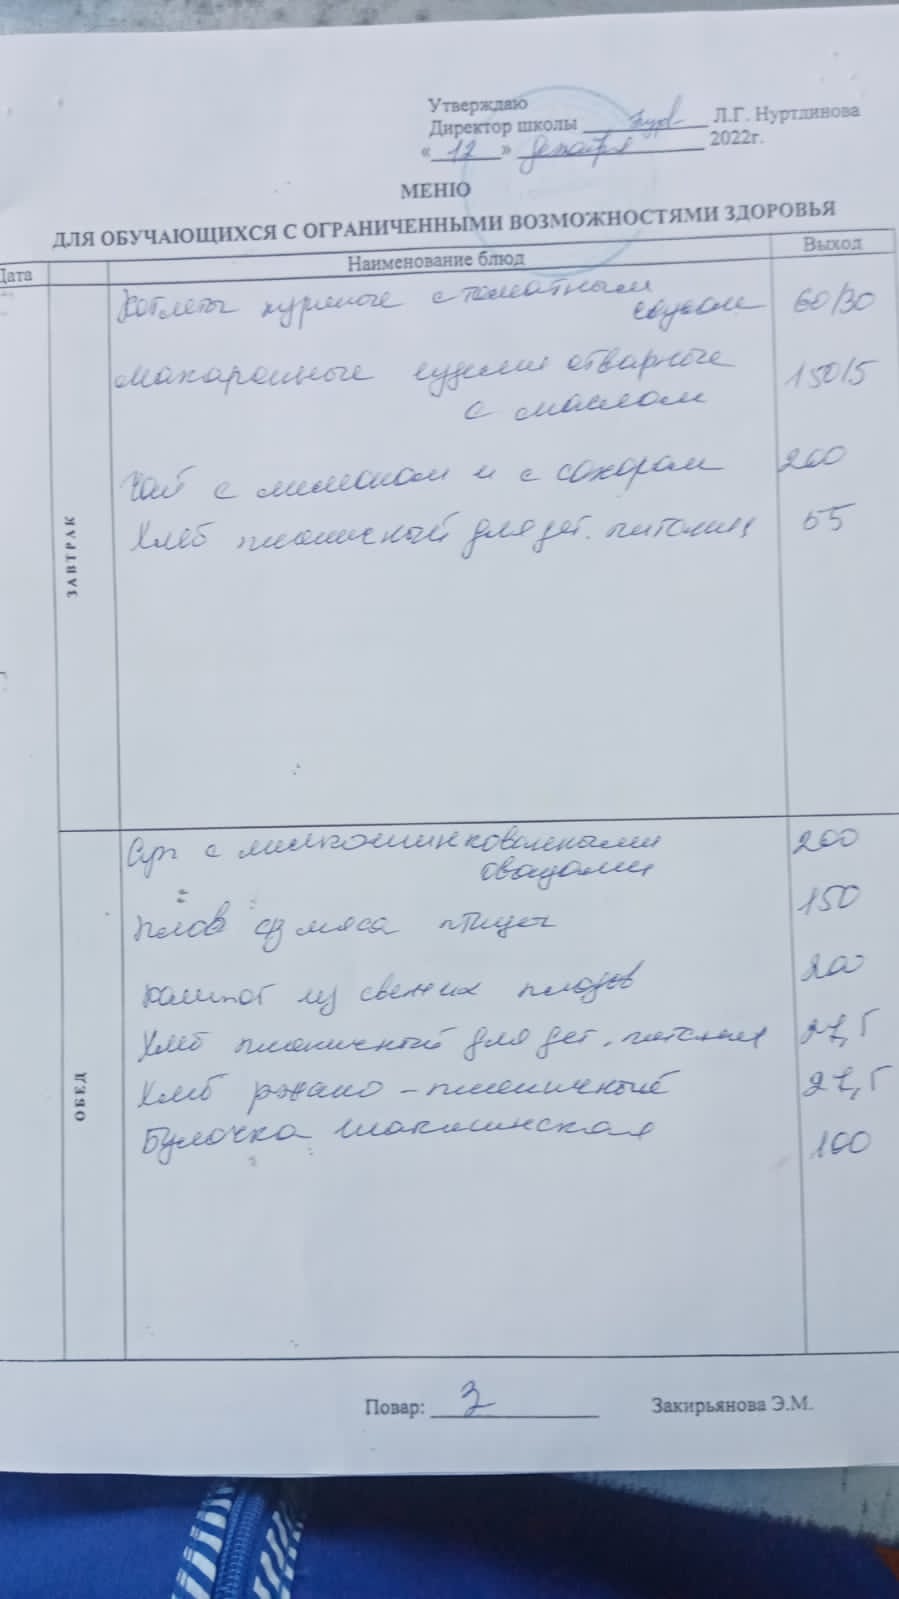 Утверждаю
Директор школы Л.Г. Нуртдинова
« 12 » декабря 2022г.
МЕНЮ
ДЛЯ ОБУЧАЮЩИХСЯ С ОГРАНИЧЕННЫМИ ВОЗМОЖНОСТЯМИ ЗДОРОВЬЯ
Дата Наименование блюд Выход
ЗАВТРАК
Котлеты куриные с томатным
соусом 60/30
Макаронные изделия отварные 150/5
с маслом
Чай с лимоном и с сахаром 200
Хлеб пшеничный для дет. питания 55
ОБЕД
Суп с мелкошинкованными 200
овощами
Плов из мяса птицы 150
Компот из свежих плодов 200
Хлеб пшеничный для дет. питания 27,5
Хлеб ржано-пшеничный 27,5
Булочка 100
Повар: З Закирьянова Э.М.